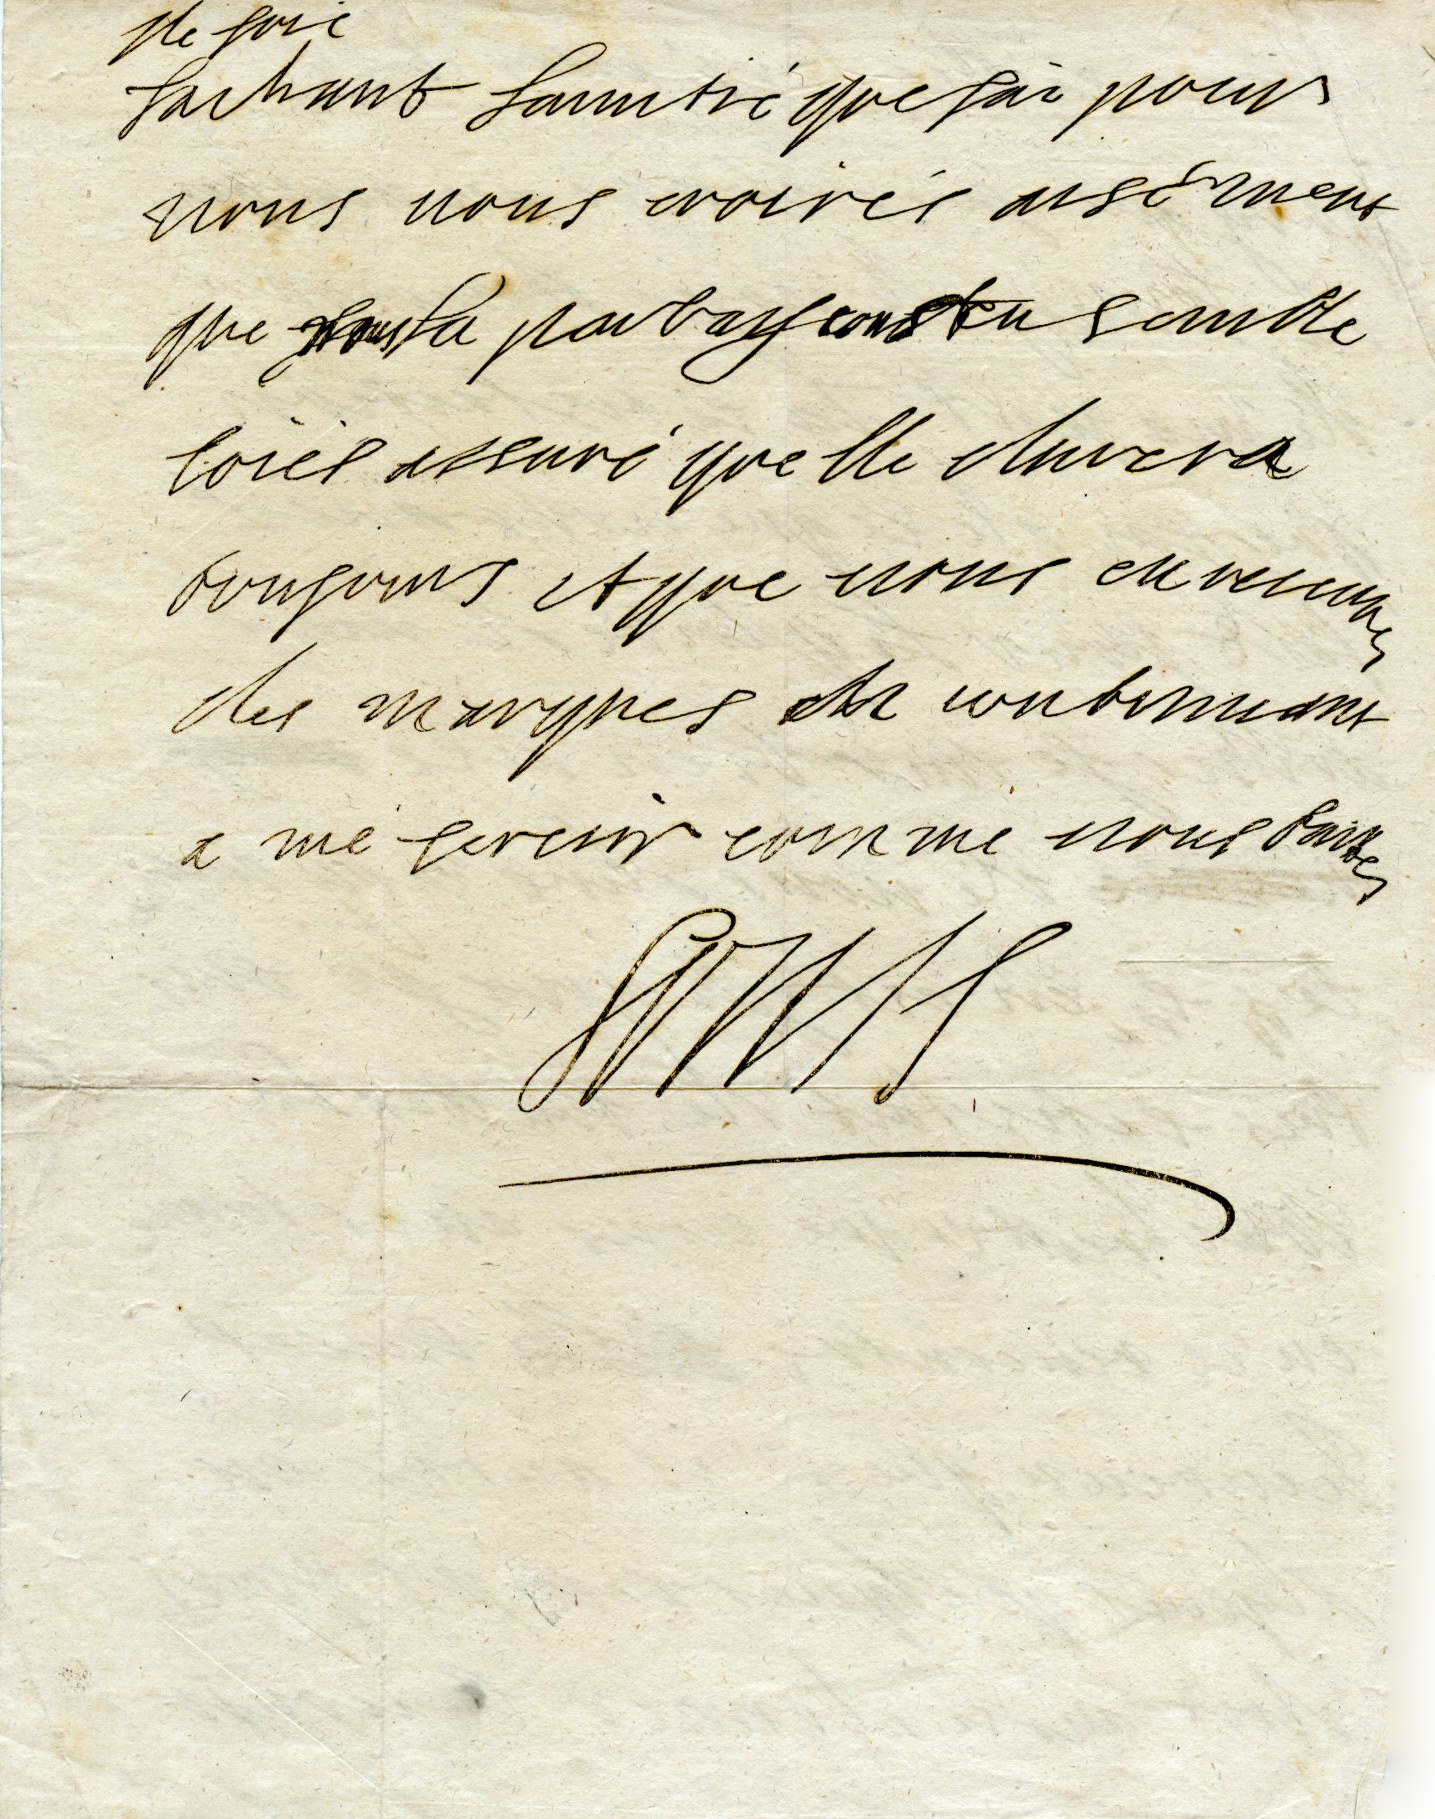 de joie
sachant lamitié que jai pour
vous vous croirés aisément
que la
soiés assuré quelle durera
toujours et que vous en recevrés
des marques en continuant
a me servir comme vous faites
LOUIS